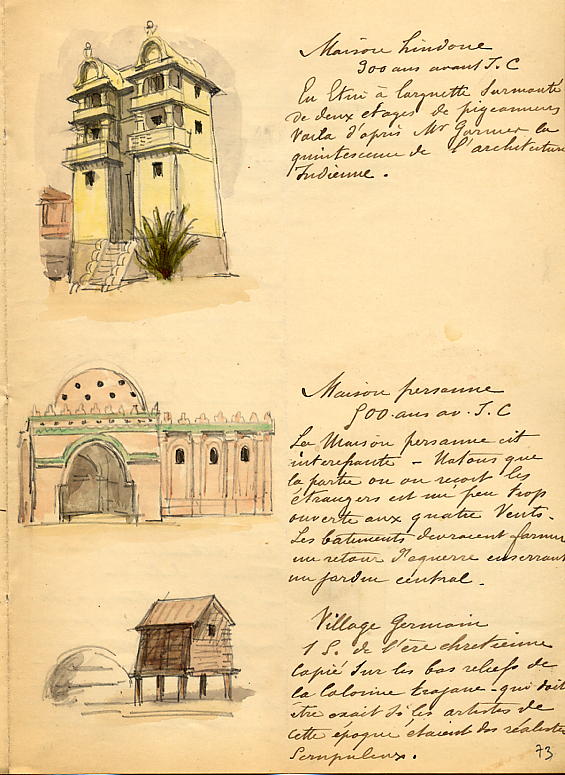 Maison hindoue
300 ans avant J. C
En Etui à lorgnette Surmonté
de deux etages de pigeonniers
Voila d'après Mr Garnier la
quintessence de l'architecture
Indienne.
Maison persanne
500 ans av. J. C
La Maison persanne est
interessante - Notons que
la partie ou on reçoit les
étrangers est un peu trop
ouverte aux quatre Vents.
Les bâtiments devraient former
un retour d'equerre enserrant
un jardin central.
Village Germain
1 S. de l'ère chretienne
Copié Sur les bas reliefs de
la Colonne trajane - qui doit
être exact Si les artistes de
cette époque etaient des réalistes
Scrupuleux.
73